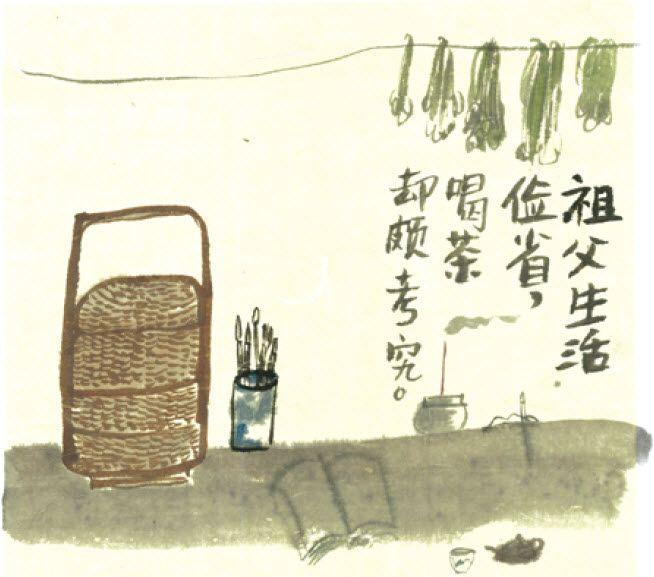 祖父生活
俭省，
喝茶
却颇考究。